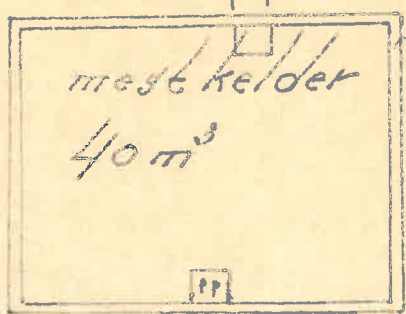 mestkelder
40 m³
PP